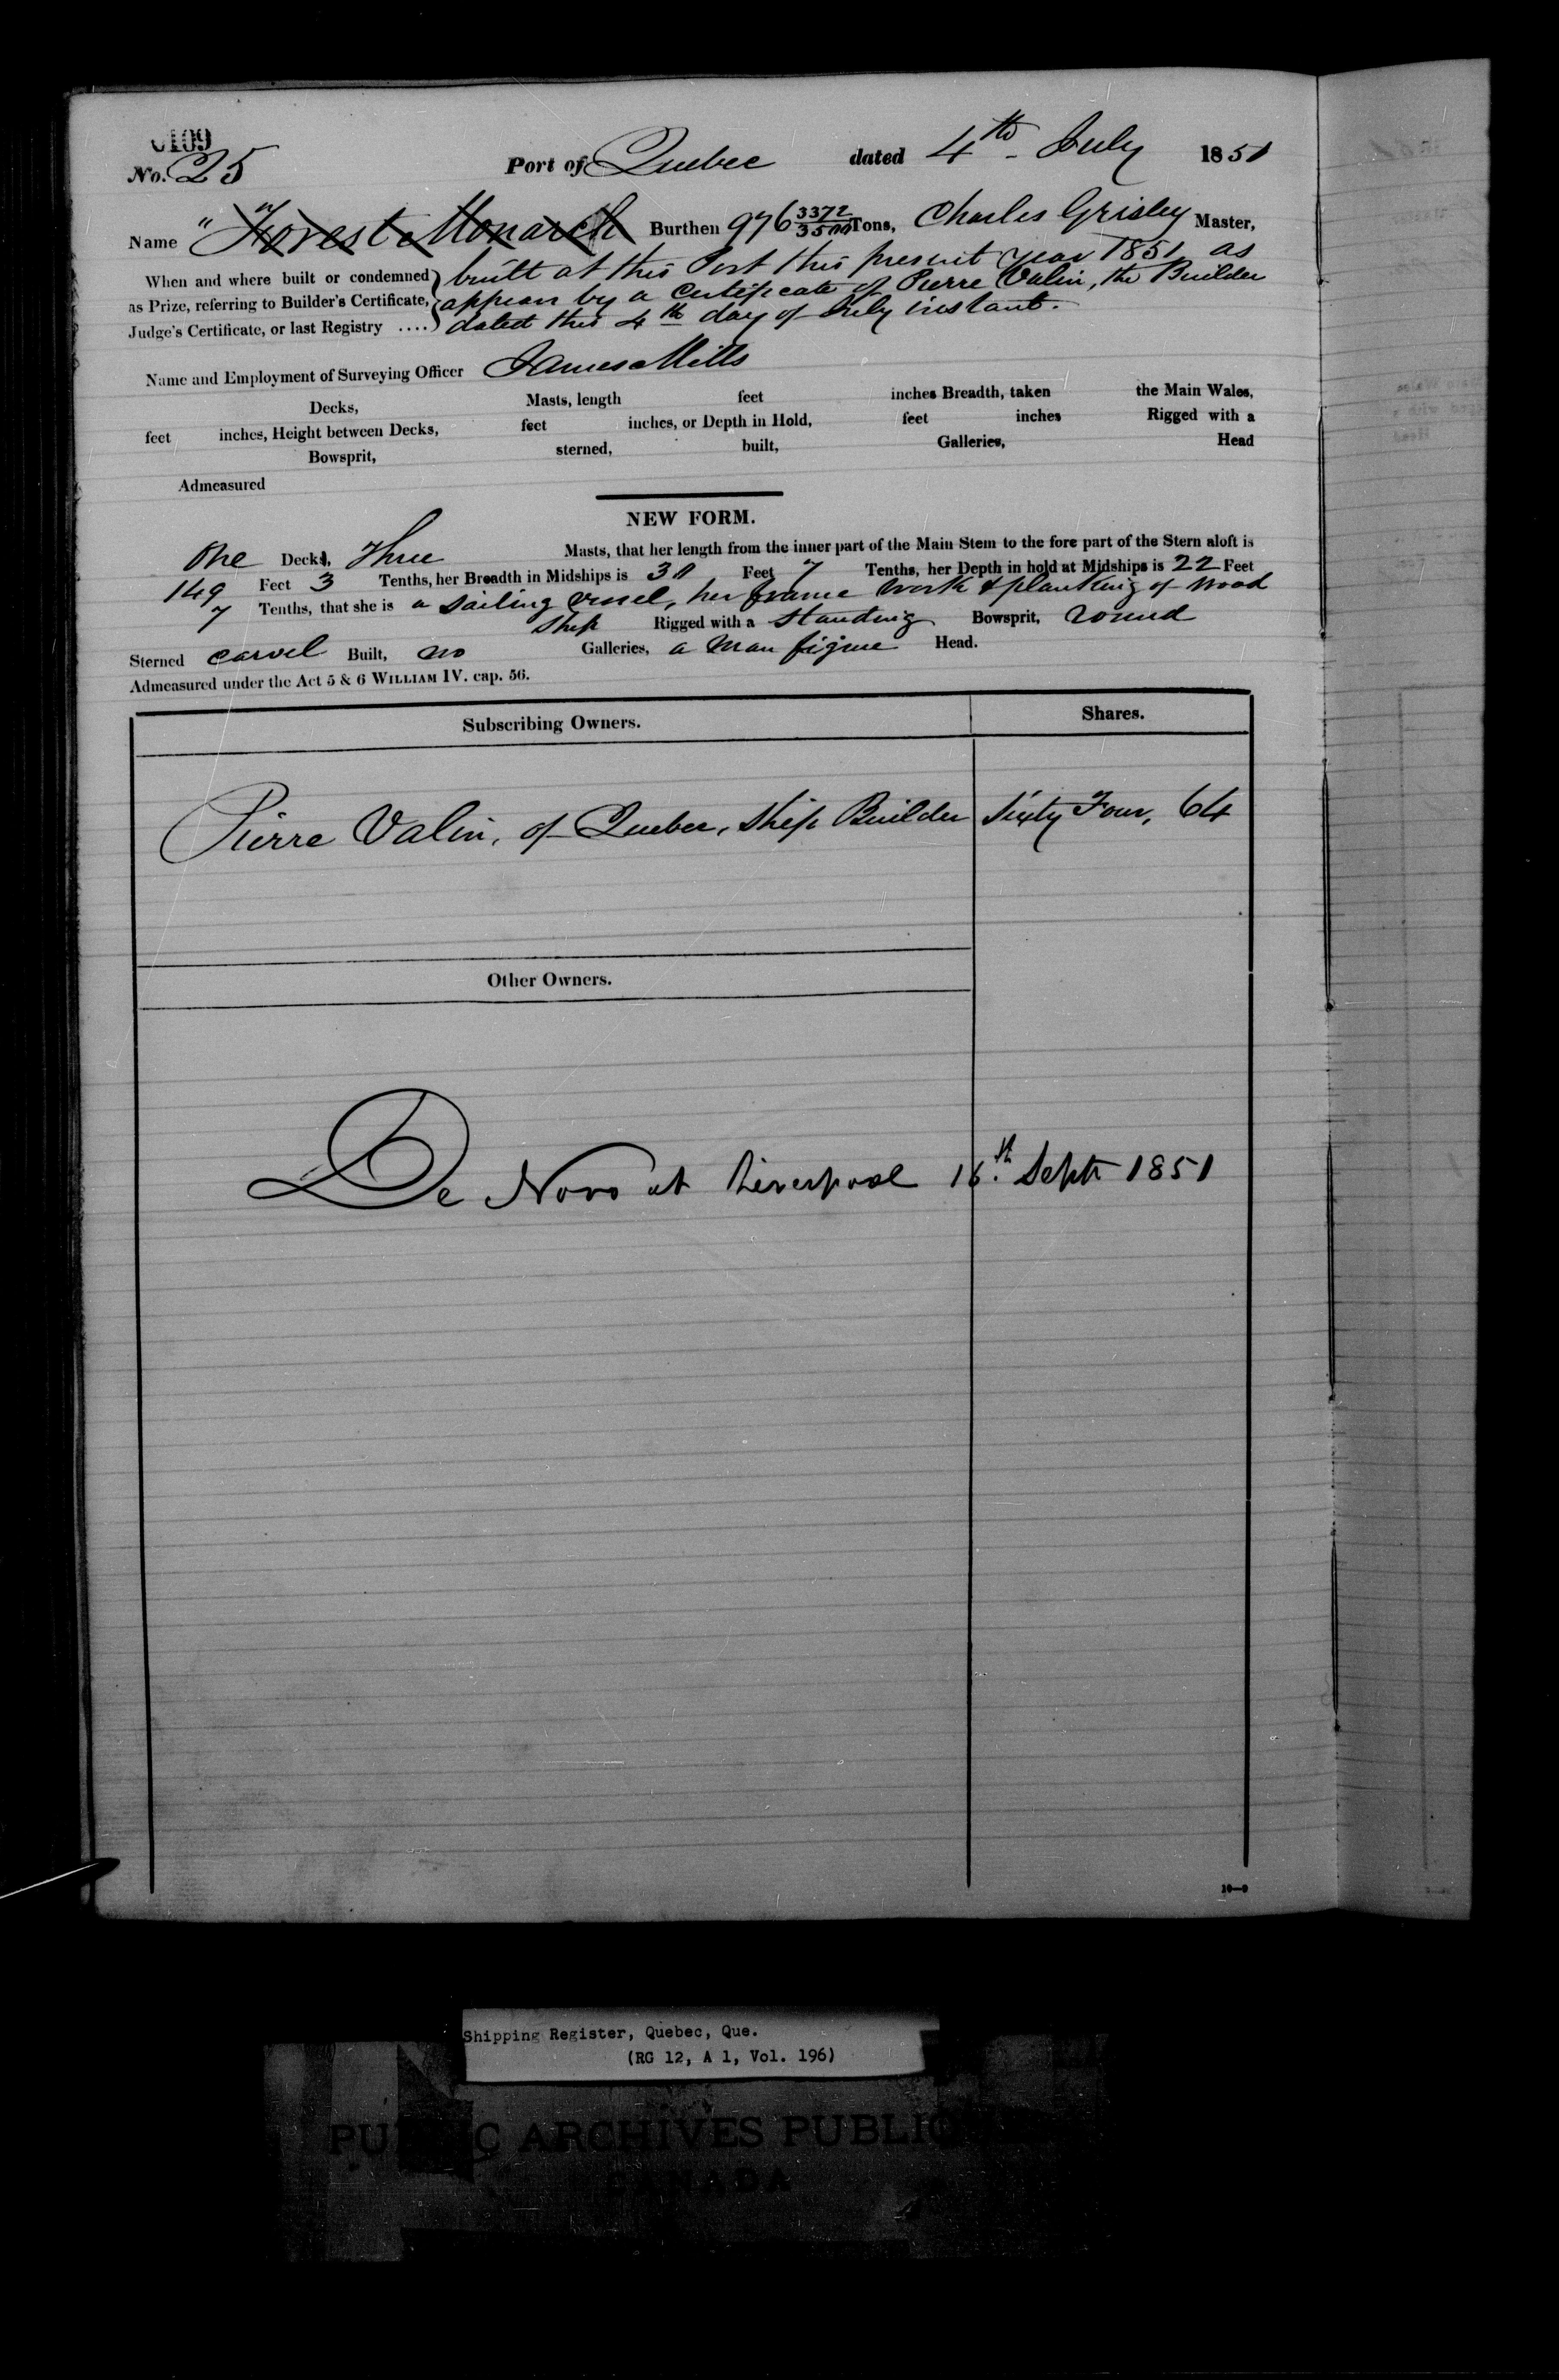 0109
No. 25 Port of Quebec dated 4th July 1851
Name "Forest Monarch" Burthen 976 3372/3500 Tons, Charles Grisley Master,
When and where built or condemned built at this Port this present year 1851 as
as Prize, referring to Builder's Certificate, appears by a Certificate of Pierre Valin, the Builder
Judge's Certificate, or last Registry .... dated this 4th day of July instant.
Name and Employment of Surveying Officer James Mills
Decks, Masts, length feet inches Breadth, taken the Main Wales,
feet inches, Height between Decks, feet inches, or Depth in Hold, feet inches Rigged with a
Bowsprit, sterned, built, Galleries, Head
Admeasured
NEW FORM.
One Decks, Three Masts, that her length from the inner part of the Main Stem to the fore part of the Stern aloft is
149 Feet 3 Tenths, her Breadth in Midships is 30 Feet 7 Tenths, her Depth in hold at Midships is 22 Feet
7 Tenths, that she is a sailing vessel, her frame work & planking of wood
Ship Rigged with a standing Bowsprit, round
Sterned carvel Built, no Galleries, a Man figure Head.
Admeasured under the Act 5 & 6 WILLIAM IV. cap. 56.
Subscribing Owners. Shares.
Pierre Valin, of Quebec, Ship Builder Sixty Four, 64
Other Owners.
De Novo at Liverpool 16th Septr 1851
10—9
Shipping Register, Quebec, Que.
(RG 12, A 1, Vol. 196)
ARCHIVES PUBLI
CANADA